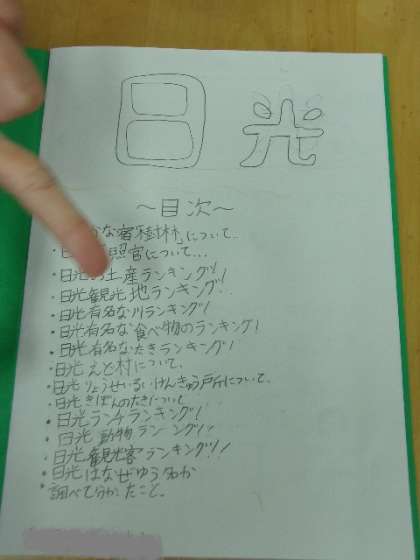 日光
～目次～
かな宿「樹林」について、
・日 照宮について…
・日光 土産ランキング!
・日光観光地ランキング!
・日光有名な川ランキング!
・日光有名な食べ物のランキング!
・日光有名なたきランキング!
・日光えど村について、
・日光りょうせいるいけんきゅう所について、
・日光きぼんのたきについて
・日光ランチランキング!
・日光動物ランキング!
・日光観光客ランキング!
・日光はなぜゆう名か
・調べて分かったこと。